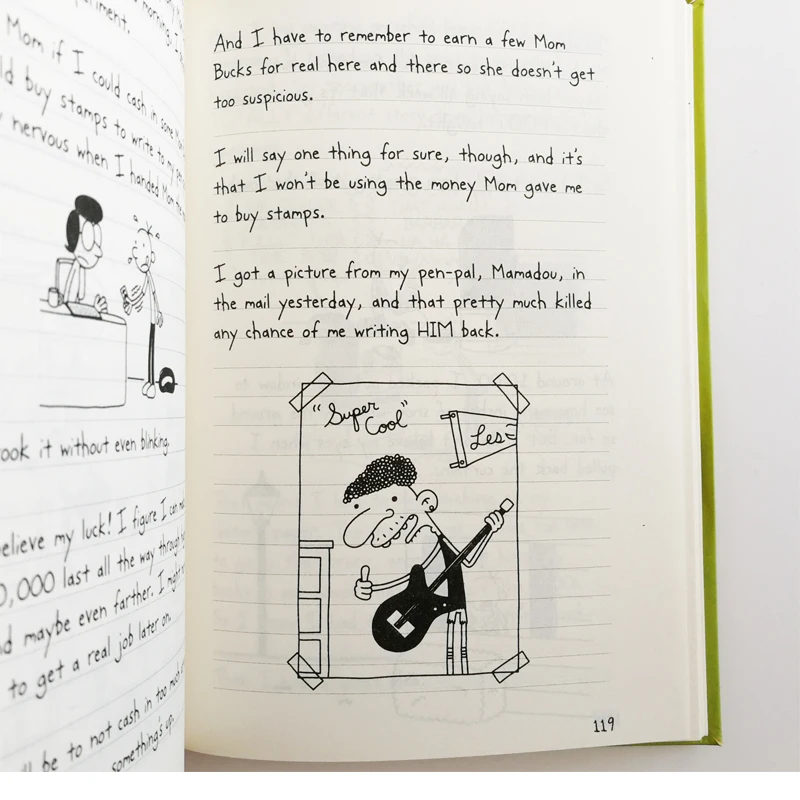 Mom if I could cash in some
buy stamps to write to my
nervous when I handed Mom
took it without even blinking.
believe my luck! I figure I can
last all the way through
maybe even farther. I might
to get a real job later on.
be to not cash in too much
something's up.
And I have to remember to earn a few Mom
Bucks for real here and there so she doesn't get
too suspicious.
I will say one thing for sure, though, and it's
that I won't be using the money Mom gave me
to buy stamps.
I got a picture from my pen-pal, Mamadou, in
the mail yesterday, and that pretty much killed
any chance of me writing HIM back.
"Super
Cool"
Les
119